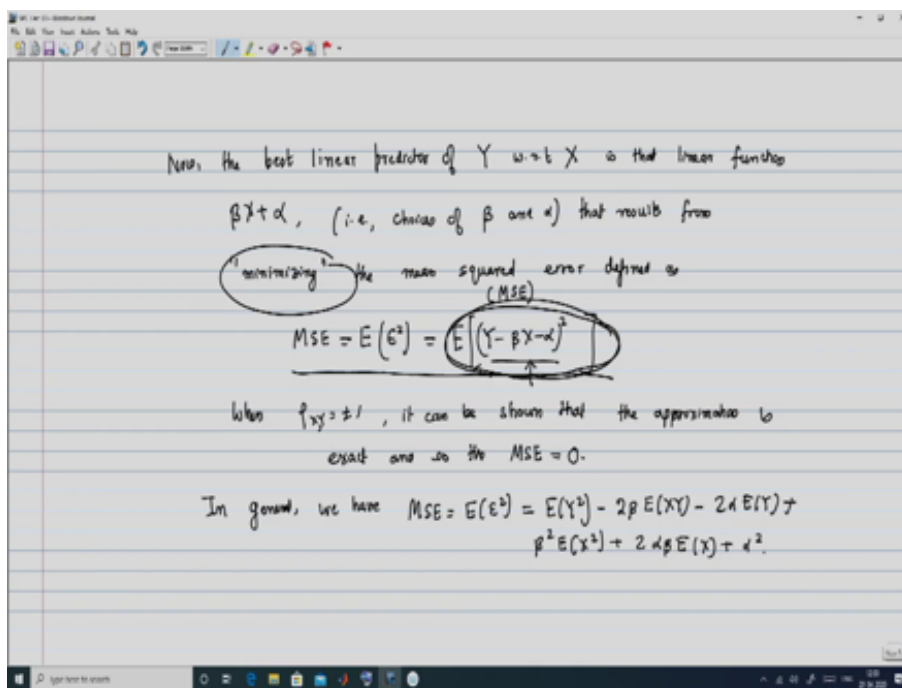 File Edit View Insert Actions Tools Help
Now, the best linear predictor of Y w.r.t X is that linear function
βX + α, (i.e, choices of β and α) that results from
"minimizing" the mean squared error defined as
(MSE)
MSE = E(ε²) = E[(Y - βX - α)²]
When ρxy = ±1, it can be shown that the approximation is
exact and so the MSE = 0.
In general, we have MSE = E(ε²) = E(Y²) - 2βE(XY) - 2αE(Y) +
β²E(X²) + 2αβE(X) + α².
Type here to search